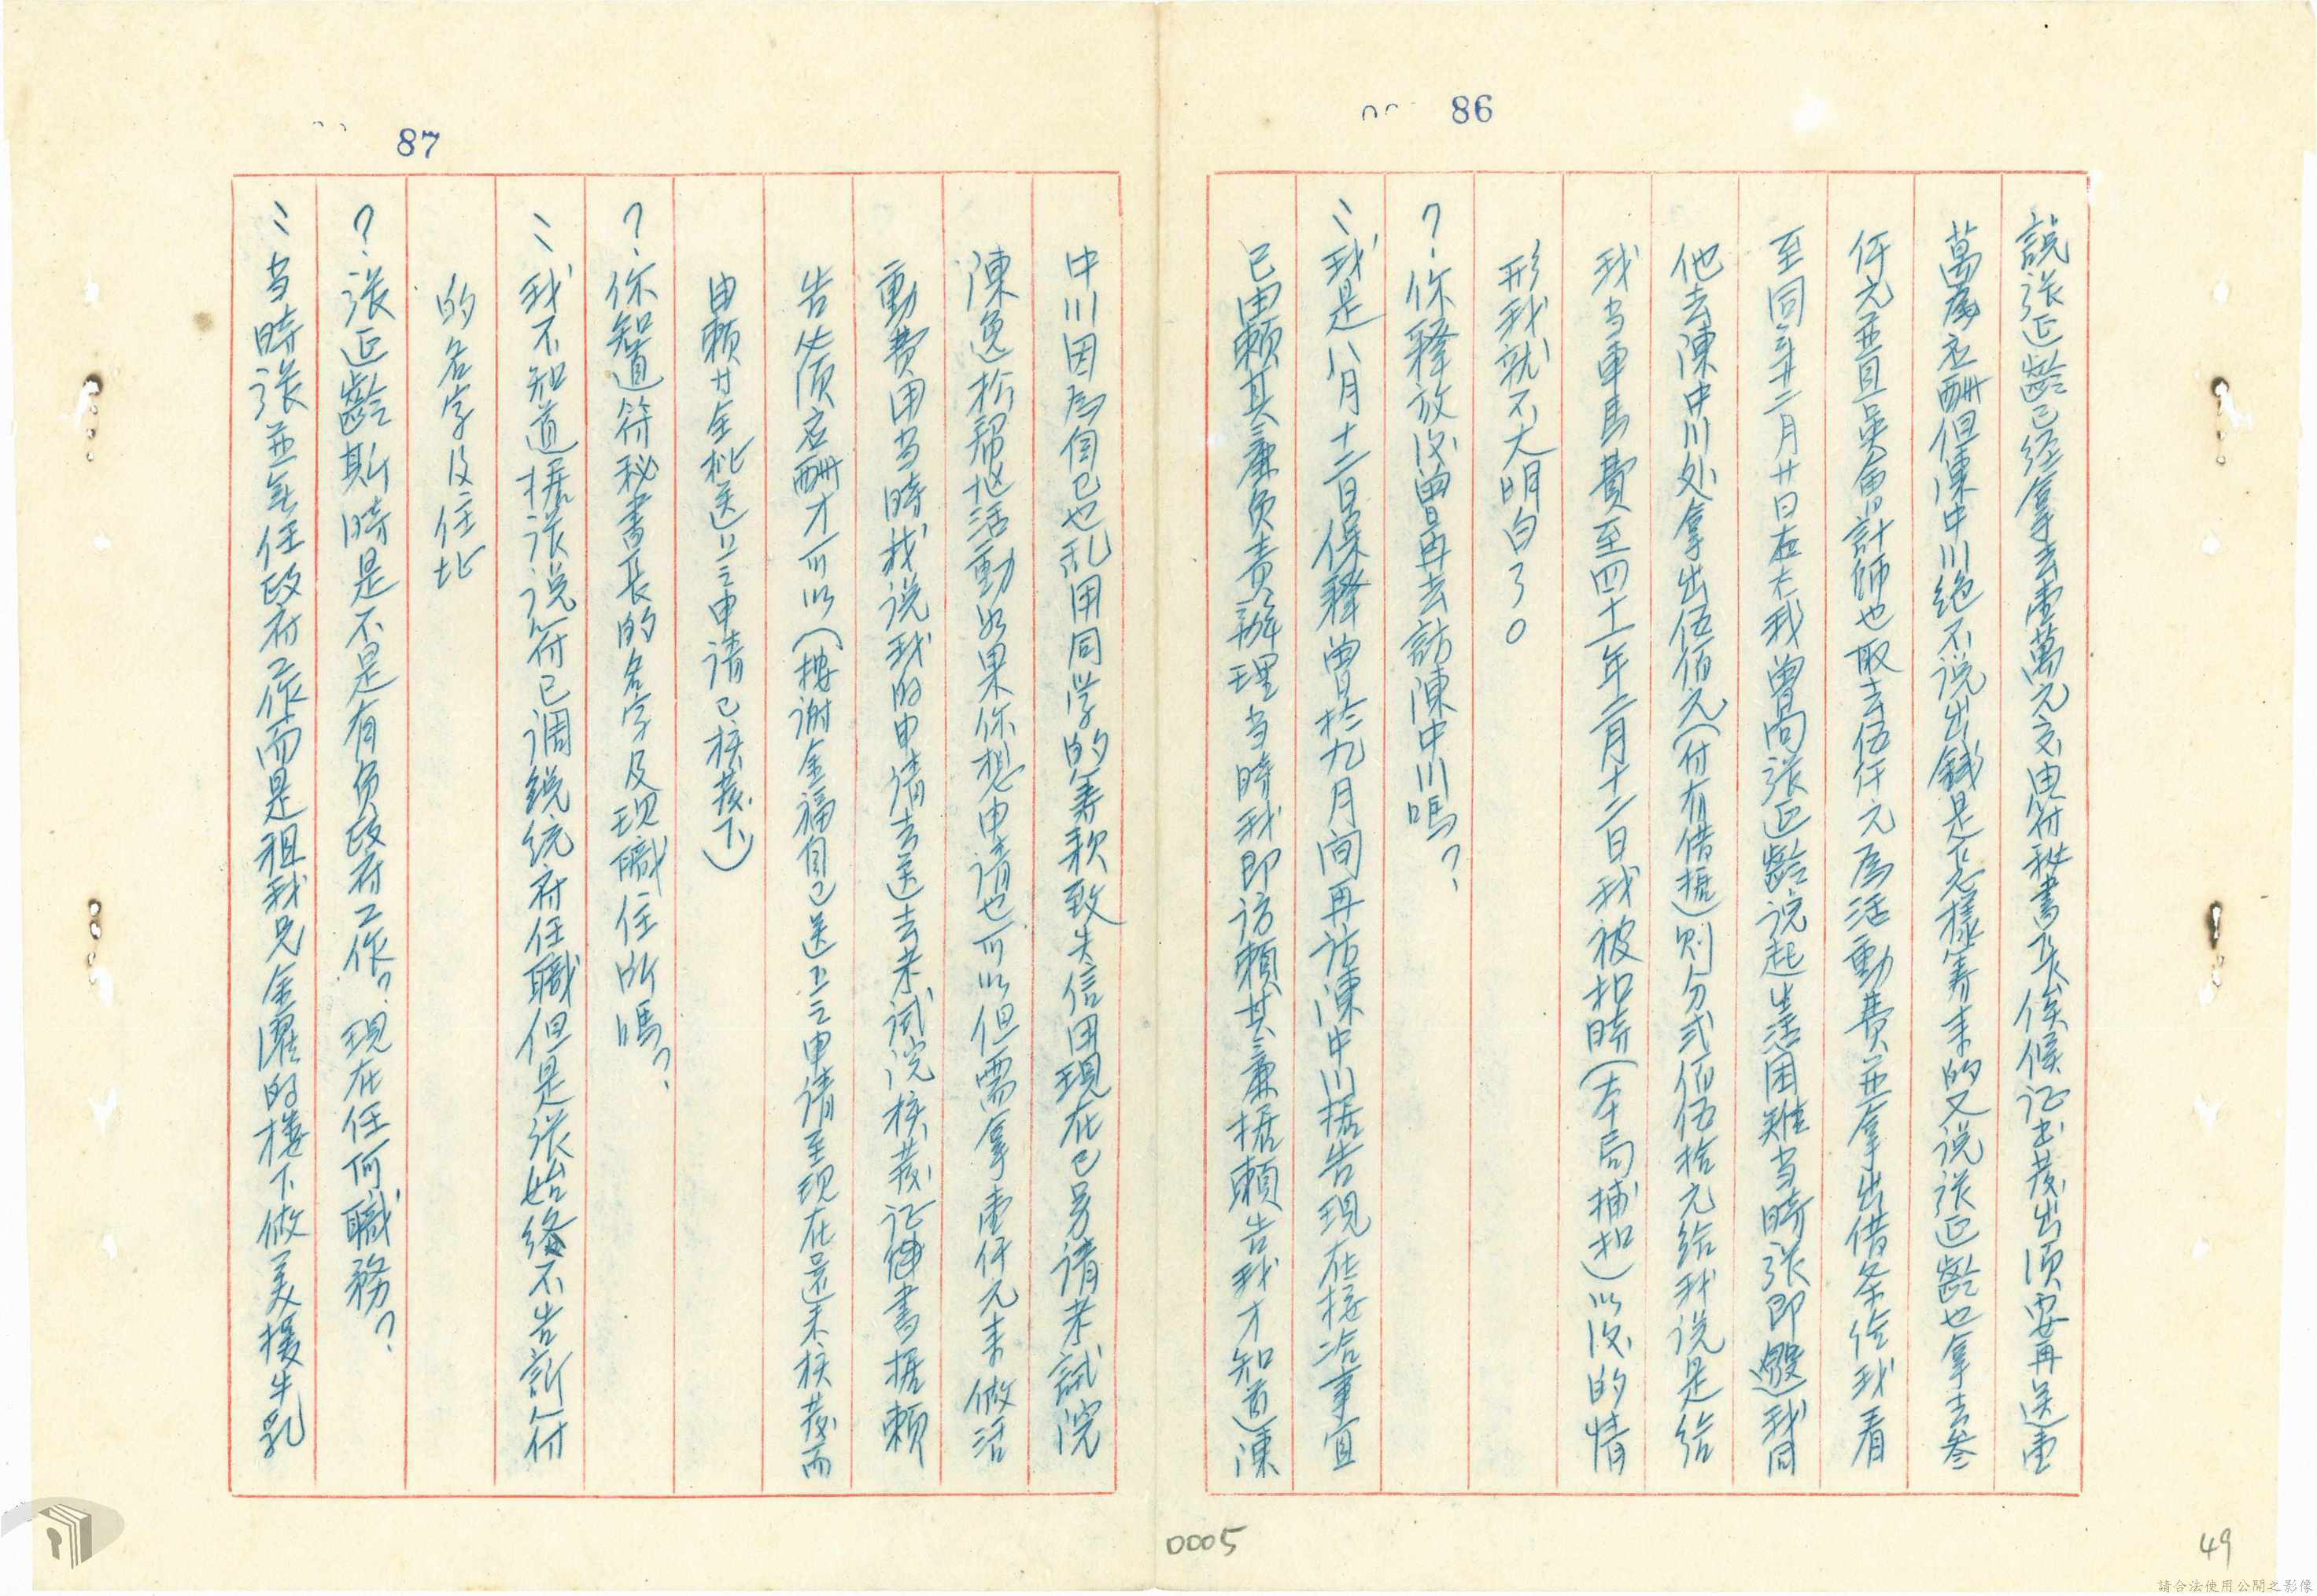 86
說張延齡已經拿去壹萬元交由符秘書長候候证书發出須要再送壹
萬為应酬但陳中川绝不说出錢是怎樣筹来的又说张延齡也拿去叁
仟元並且吳會計師也取去伍仟元為活動費並拿出借条给我看
至同年十二月廿日左右我曾向張延齡说起生活困難当時张即邀我同
他去陳中川处拿出伍佰元(付有借据)则分弍佰伍拾元给我说是给
我当車馬費至四十一年二月十二日我被扣時(本局捕扣)以後的情
形我就不大明白了。
?.你釋放後曾再去訪陳中川嗎?
:我是八月十二日保釋曾於九月间再访陳中川据告現在接洽事宜
已由賴其廉负责辦理当時我即访賴其廉据賴告我才知道陳
87
中川因為自己也乱用同学的筹款致失信用現在已另请考試院
陳逸松帮他活動如果你想申请也可以但需拿壹仟元来做活
動費用当時我说我的申请书送去考试院核發证書据賴
告必须应酬才可以(楊谢金福自己送上之申请至现在是還未核發而
由賴廿全批送上之申请已核發下)
?.你知道符秘書長的名字及现職住所嗎?
:我不知道据张说符已调総统府任職但是张始終不告訴符
的名字及住址
?.張延齡斯時是不是有负政府工作?現在任何職務?
:当時張並無任政府工作而是租我兄金潭的樓下做美援牛乳
0005
49
請合法使用公開之影像